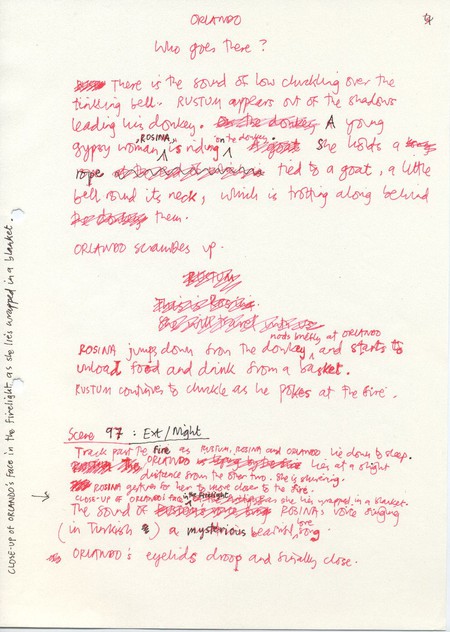 ORLANDO
4
Who goes there?
There is the sound of low chuckling over the
tinkling bell. RUSTUM appears out of the shadows
leading his donkey. A young
gypsy woman, ROSINA, is riding on the donkey. She holds a
rope tied to a goat, a little
bell round its neck, which is trotting along behind
them.
ORLANDO scrambles up.
RUSTUM
This is Rosina.
She will travel with us
ROSINA jumps down from the donkey, nods briefly at ORLANDO and starts to
unload food and drink from a basket.
RUSTUM continues to chuckle as he pokes at the fire.
Scene 97: Ext/Night
Track past the fire as RUSTUM, ROSINA and ORLANDO lie down to sleep.
ORLANDO lies at a slight
distance from the other two. She is shivering.
ROSINA gestures for her to move closer to the fire.
CLOSE-UP of ORLANDO's face in the firelight as she lies wrapped in a blanket.
The sound of ROSINA's voice singing
(in Turkish) a mysterious beautiful love song.
ORLANDO's eyelids droop and finally close.
CLOSE-UP OF ORLANDO'S FACE IN THE FIRELIGHT AS SHE LIES WRAPPED IN A BLANKET.